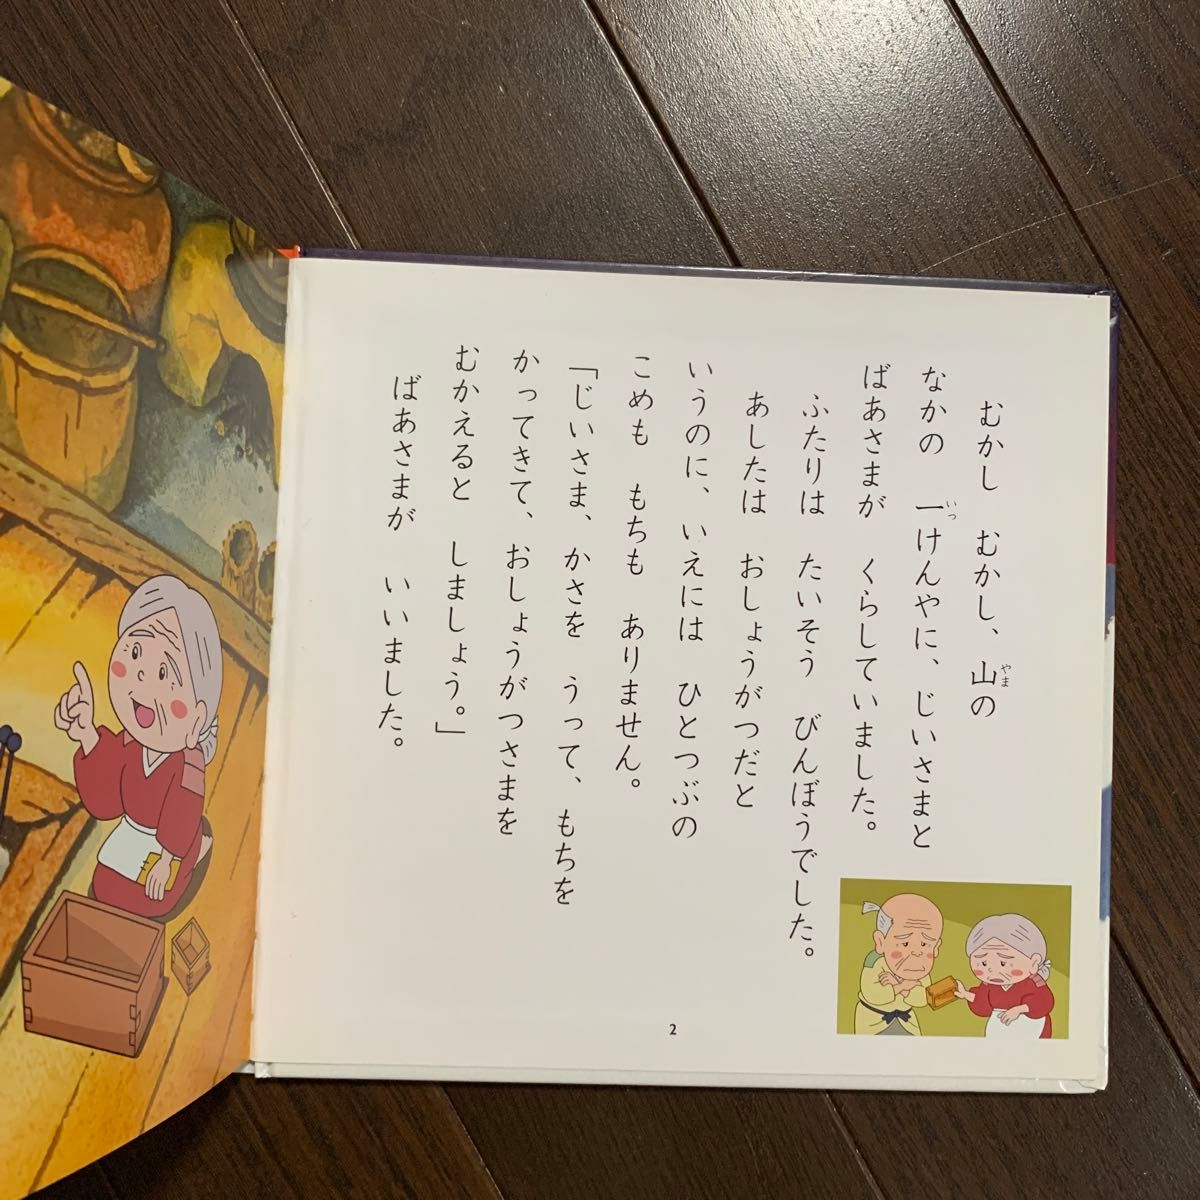 むかし　むかし、山の
なかの　一けんやに、じいさまと
ばあさまが　くらしていました。
ふたりは　たいそう　びんぼうでした。
あしたは　おしょうがつだと
いうのに、いえには　ひとつぶの
こめも　もちも　ありません。
「じいさま、かさを　うって、もちを
かってきて、おしょうがつさまを
むかえると　しましょう。」
ばあさまが　いいました。
やま
いっ
2